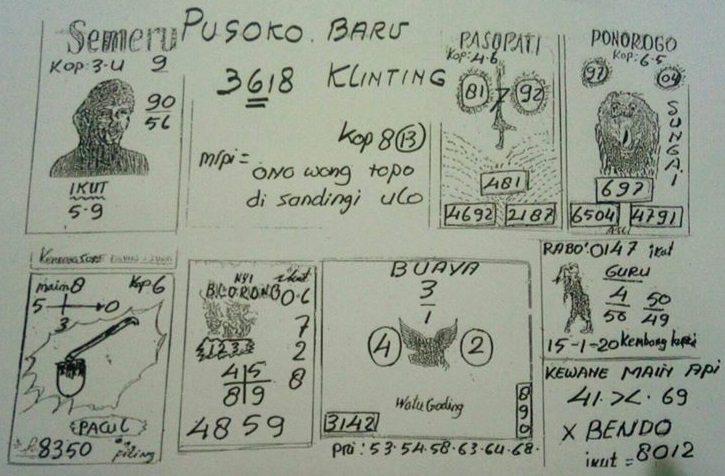 Semeru
Kop: 3-4 9
90
56
IKUT
5-9
PUSOKO. BARU
3618 KLINTING
Kop 8 (13)
m/pi =
ono wong topo
di sandingi ulo
PASOPATI
Kop: 4-6
81 92
481
4692 2187
PONOROGO
Kop: 6-5
97 04
SUNGAI
697
6504 4791
main 8 Kop 6
5 0
3
PACUL
8350 piling
NYI ikut
BLORONG 0.6
7
1238 2
45 8
89
4859
BUAYA
3
1
4 2
Watu Gading
3142
890
pri: 53.54.58.63.64.68.
RABO: 0147 ikut
GURU
4 50
56 49
15-1-20 Kembang kopi
KEWANE MAIN API
41 >< 69
X BENDO
ikut = 8012